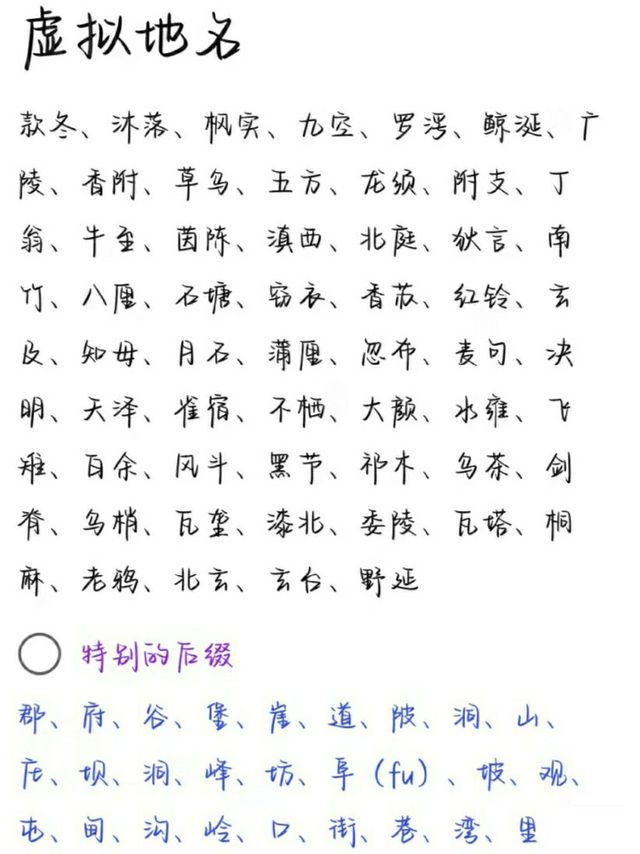 虚拟地名
款冬、沐落、枫实、九空、罗浮、鲸涎、广
陵、香附、草乌、五方、龙须、附支、丁
翁、牛至、茵陈、滇西、北庭、狄言、南
竹、八厘、石塘、窃衣、香苏、红铃、玄
及、知母、月石、蒲厘、忽布、麦句、决
明、天泽、雀宿、不栖、大颜、水雍、飞
雉、白余、风斗、黑节、祁木、乌茶、剑
脊、乌梢、瓦垄、漆北、委陵、瓦塔、桐
麻、老鸦、北玄、玄台、野延
特别的后缀
郡、府、谷、堡、崖、道、陂、洞、山、
庄、坝、洞、峰、坊、阜（fu）、坡、观、
屯、甸、沟、岭、口、街、巷、湾、里